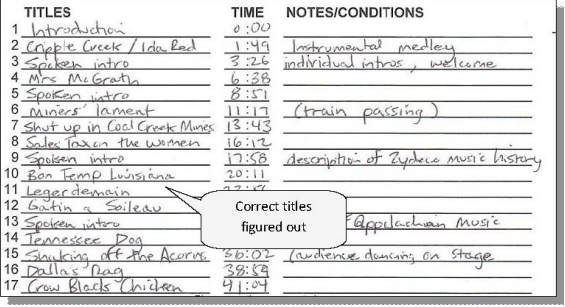 TITLES TIME NOTES/CONDITIONS
1 Introduction 0:00
2 Cripple Creek / Ida Red 1:49 Instrumental medley
3 Spoken intro 3:26 individual intros, welcome
4 Mrs McGrath 6:38
5 Spoken intro 8:51
6 Miners' lament 11:17 (train passing)
7 Shut up in Coal Creek Mines 13:43
8 Sales Tax on the women 16:12
9 Spoken intro 17:58 description of Zydeco music history
10 Bon Temp Louisiana 20:11
11 Legerdemain
12 Gatin a Soileau
13 Spoken intro Appalachian Music
14 Tennessee Dog
15 Shaking off the Acorns 36:02 (audience dancing on stage
16 Dallas Rag 38:59
17 Crow Black Chicken 41:04
Correct titles
figured out